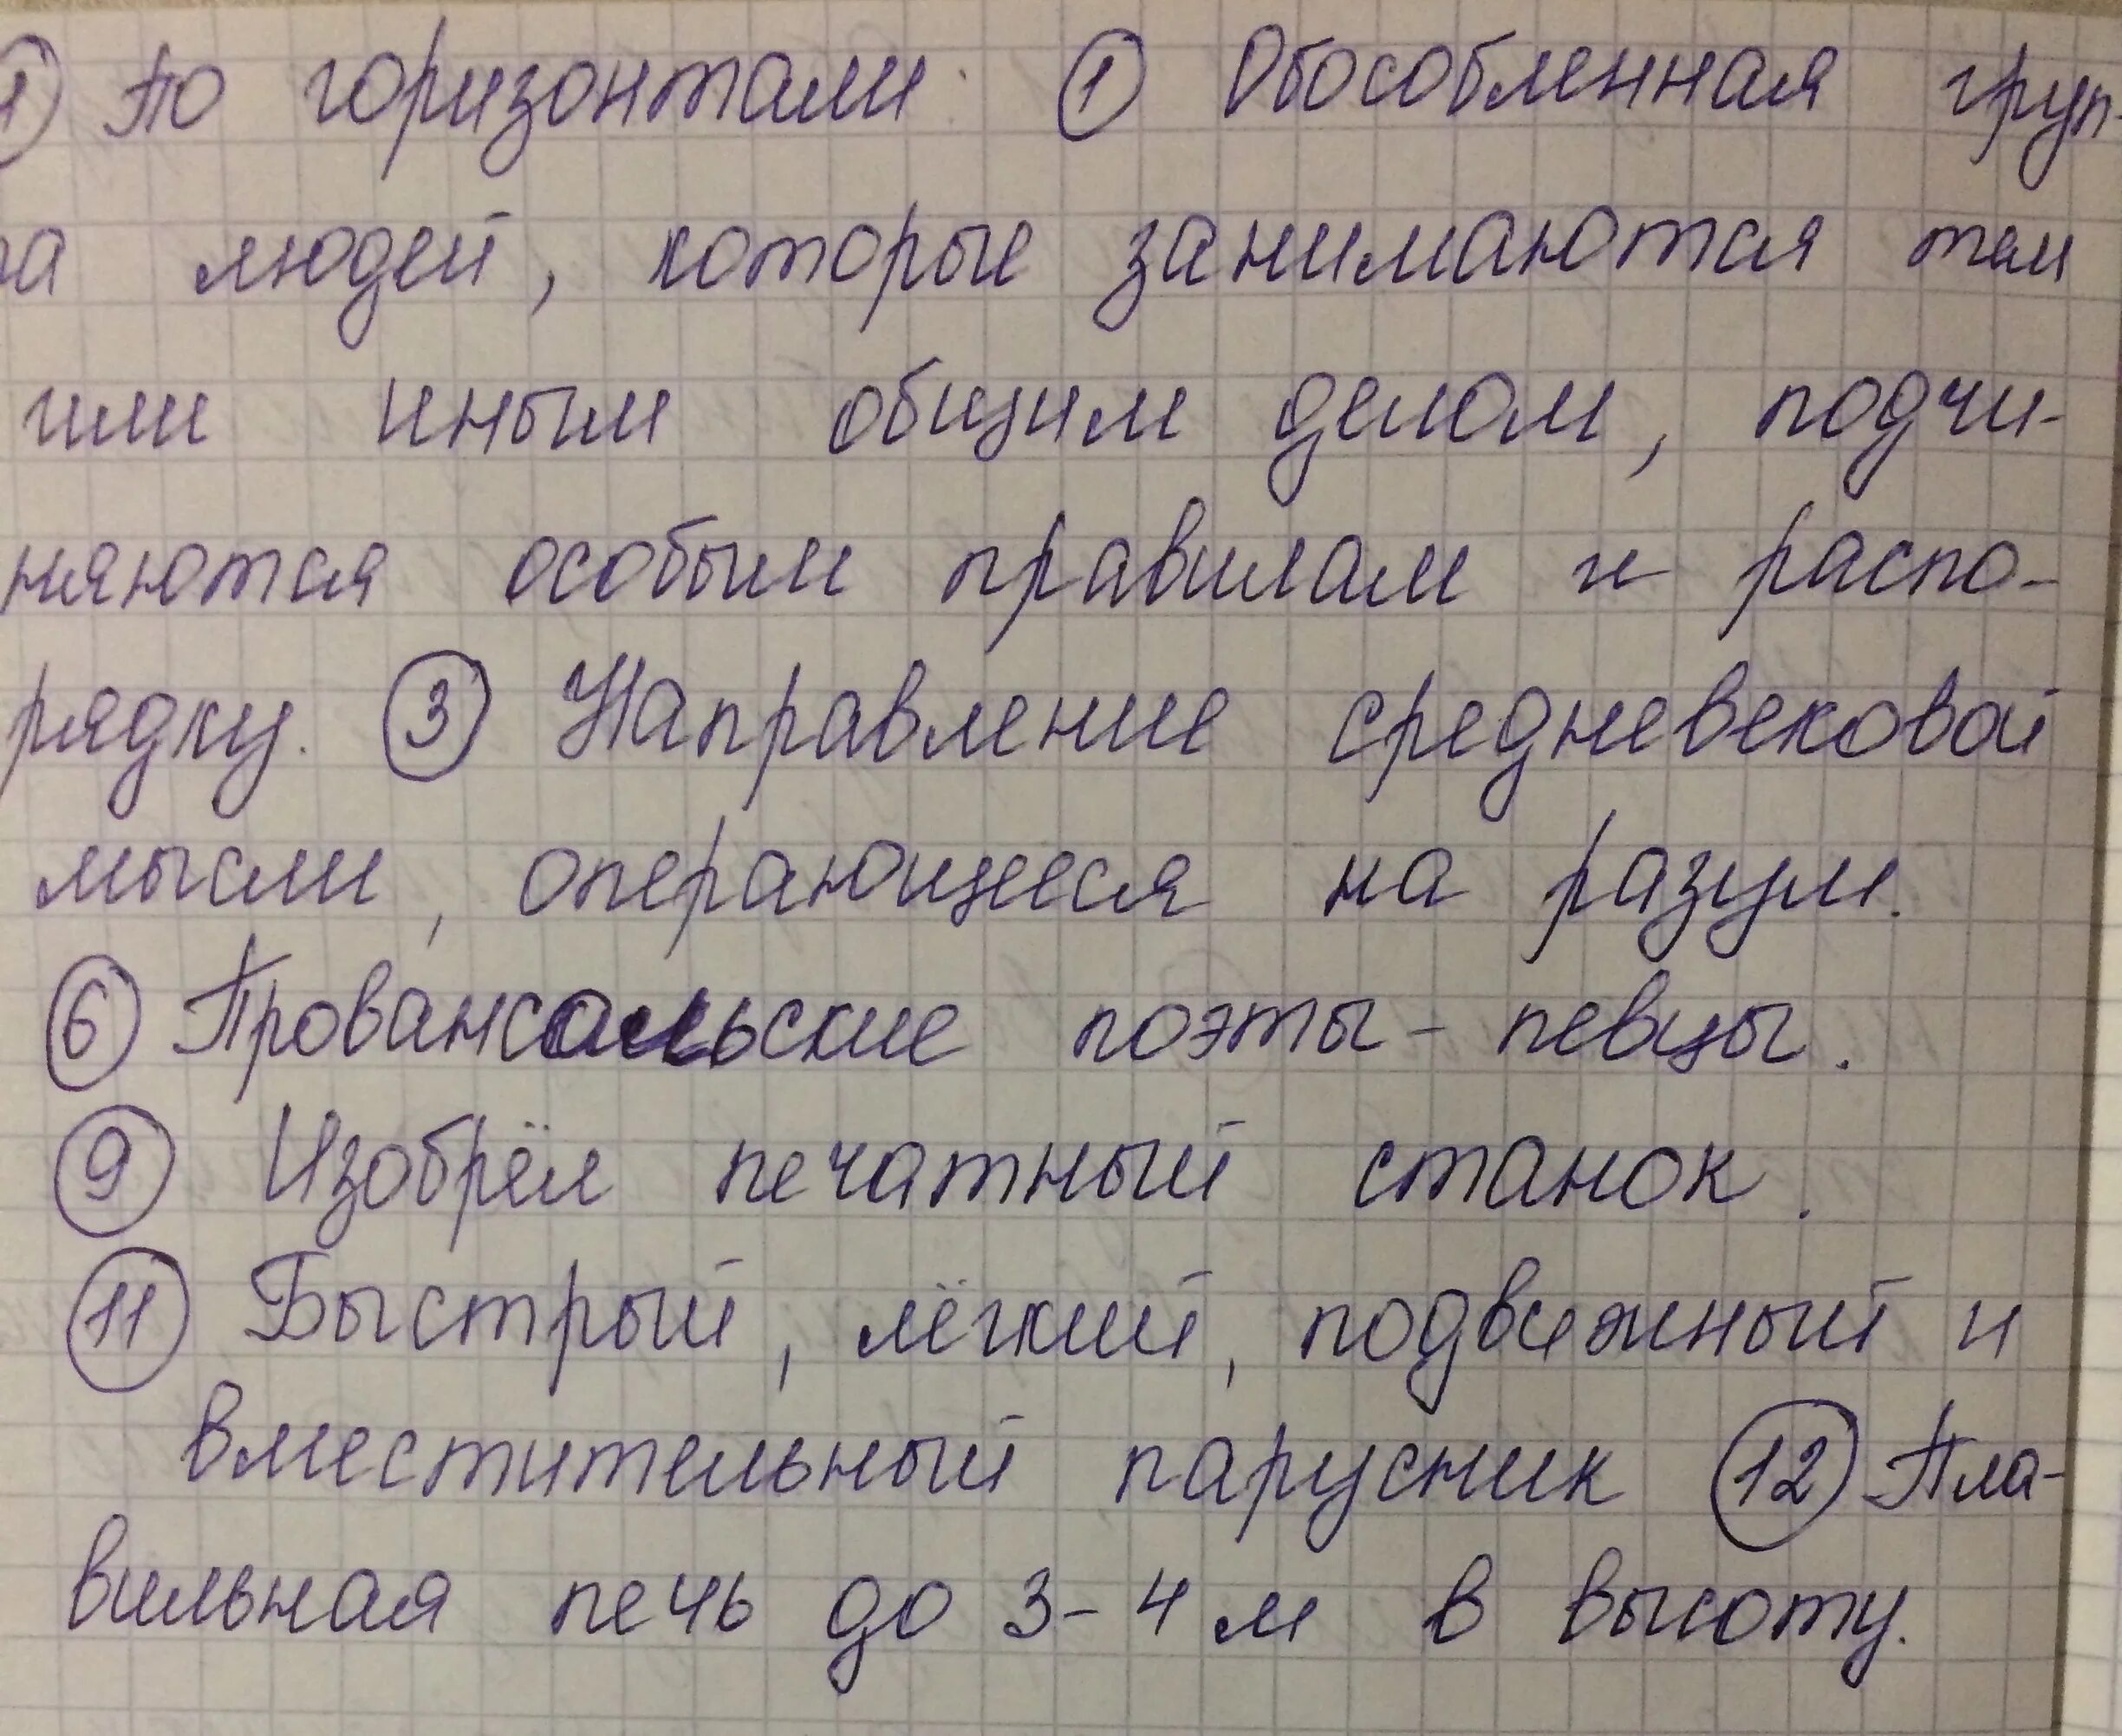 ① По горизонтали: ① Обособленная груп-
па людей, которые занимаются тем
или иным общим делом, подчи-
няются особым правилам и распо-
рядку. ③ Направление средневековой
мысли, операющееся на разум.
⑥ Провансальские поэты - певцы.
⑨ Изобрёл печатный станок.
⑪ Быстрый, лёгкий, подвижный и
вместительный парусник ⑫ Пла-
вильная печь до 3-4 м в высоту.